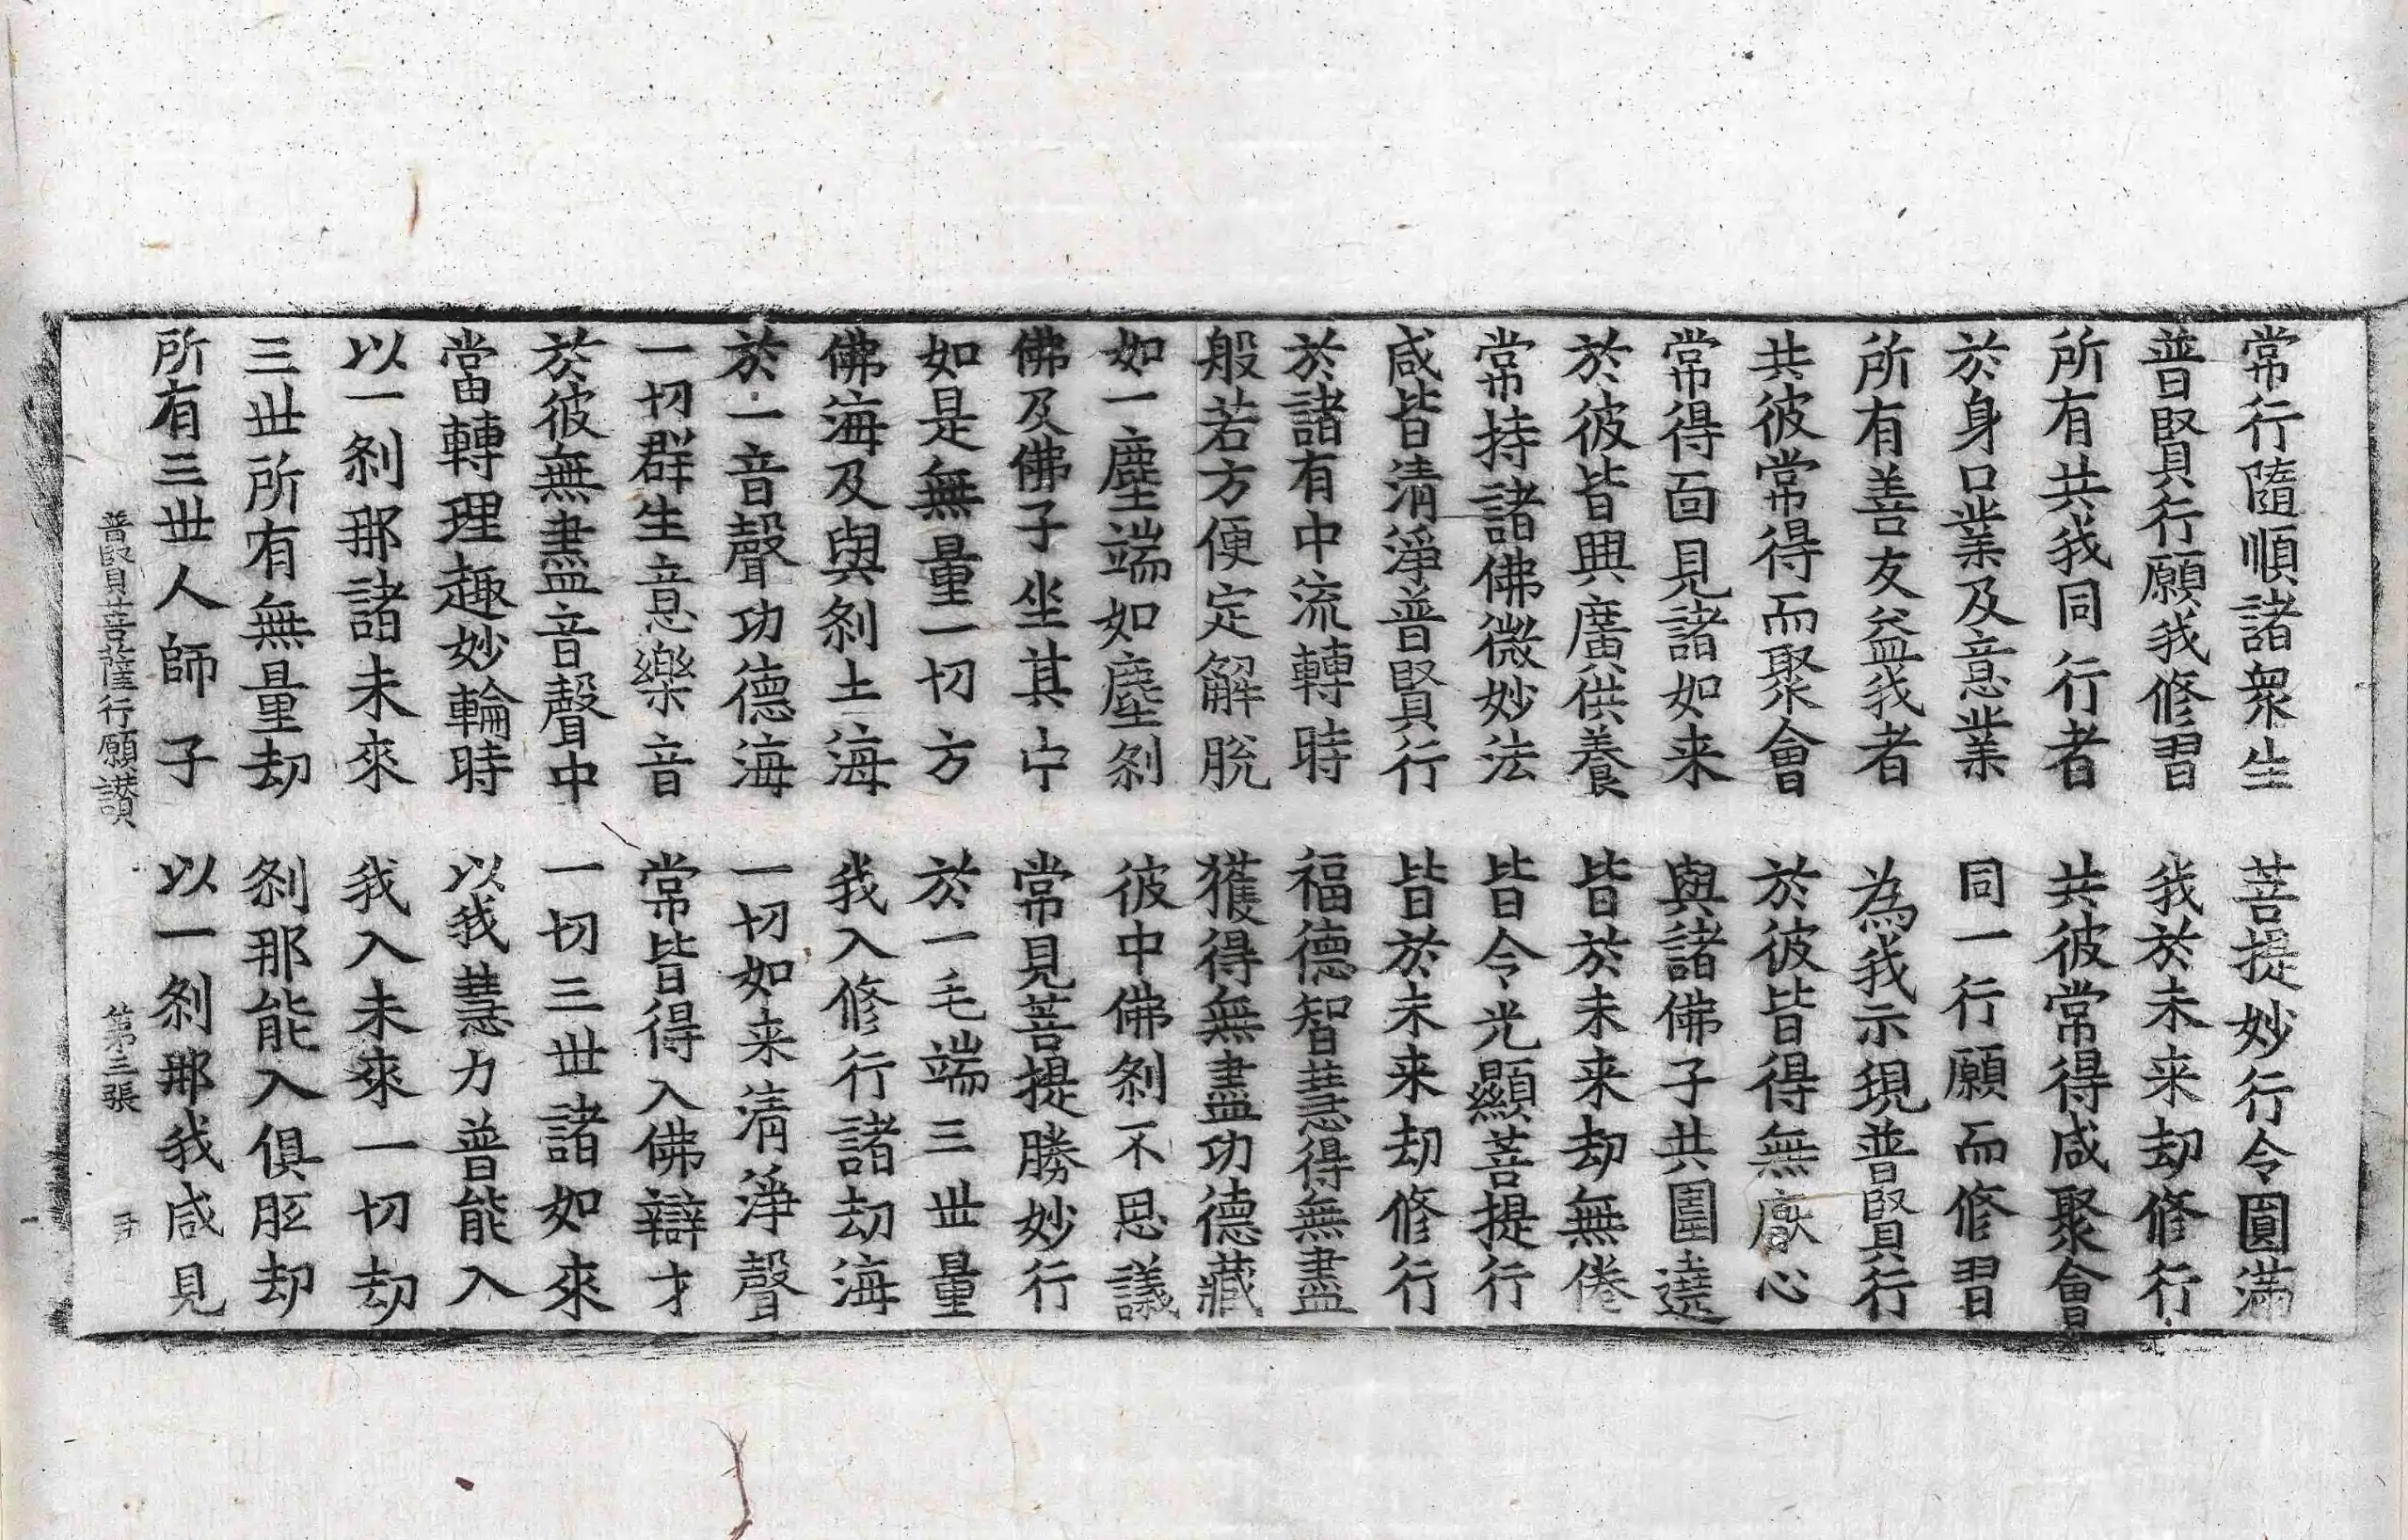 常行隨順諸衆生　菩提妙行令圓滿
普賢行願我修習　我於未来劫修行
所有共我同行者　共彼常得咸聚會
於身口業及意業　同一行願而修習
所有善友益我者　為我示現普賢行
共彼常得而聚會　於彼皆得無厭心
常得面見諸如来　與諸佛子共圍遶
於彼皆興廣供養　皆於未来劫無倦
常持諸佛微妙法　皆令光顯菩提行
咸皆清淨普賢行　皆於未来劫修行
於諸有中流轉時　福德智慧得無盡
般若方便定解脫　獲得無盡功德藏
如一塵端如塵剎　彼中佛剎不思議
佛及佛子坐其中　常見菩提勝妙行
如是無量一切方　於一毛端三丗量
佛海及與剎土海　我入修行諸劫海
於一音聲功德海　一切如来清淨聲
一切群生意樂音　常皆得入佛辯才
於彼無盡音聲中　一切三丗諸如來
當轉理趣妙輪時　以我慧力普能入
以一剎那諸未來　我入未來一切劫
三丗所有無量劫　剎那能入俱胝劫
所有三丗人師子　以一剎那我咸見
普賢菩薩行願讃　第三張　尹